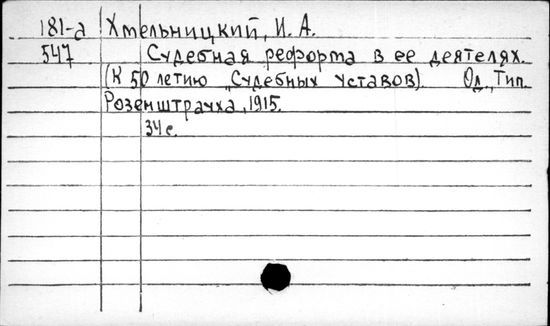 181-а Хмельницкий, И. А.
547 Судебная реформа в ее деятелях.
(К 50 летию „Судебных уставов). Од., Тип.
Розенштрауха, 1915.
34 с.